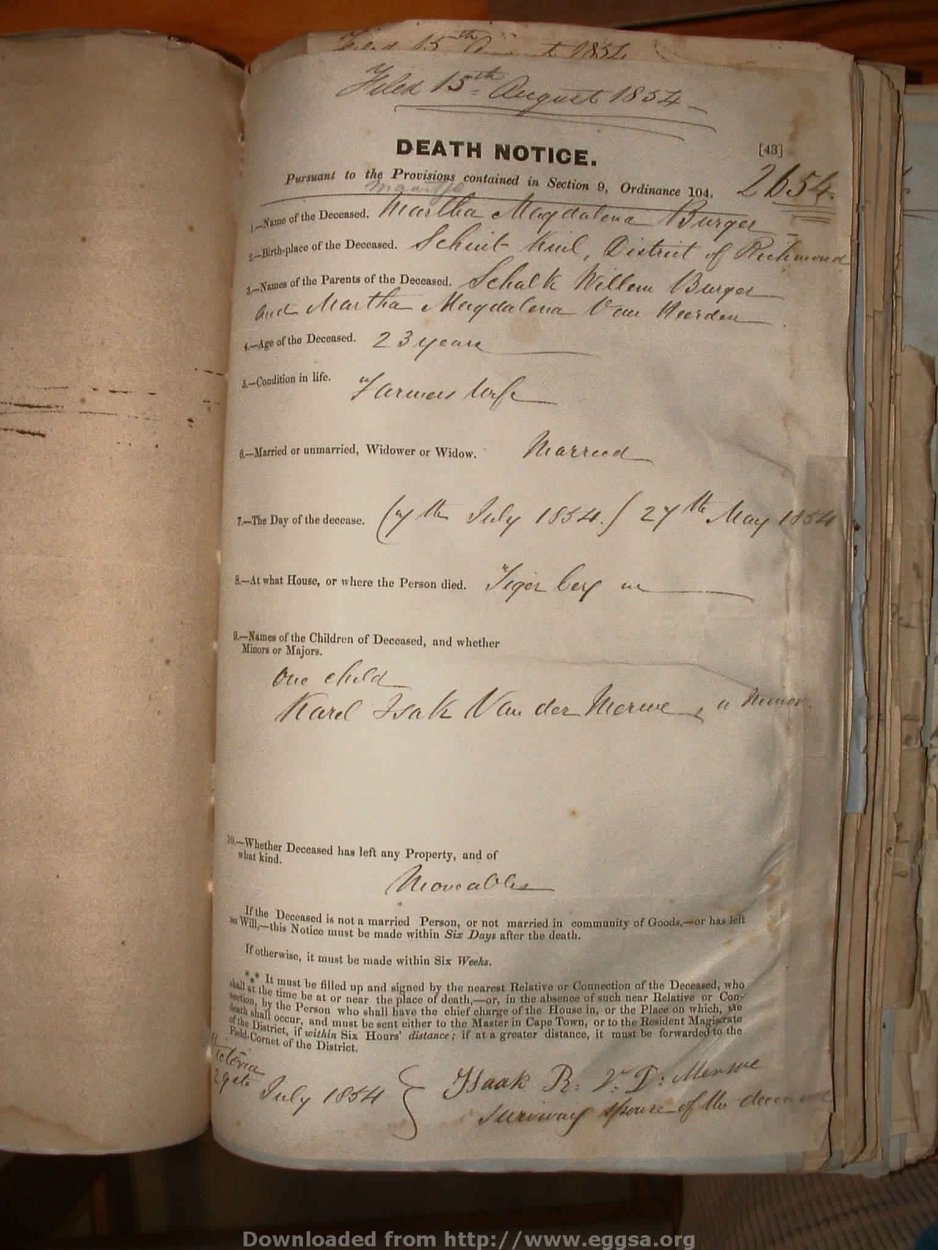 Filed 15th August 1854
DEATH NOTICE.
[43]
Pursuant to the Provisions contained in Section 9, Ordinance 104.
2654.
1.—Name of the Deceased. Martha Magdalena Burger
2.—Birth-place of the Deceased. Schiet Kuil, District of Richmond
3.—Names of the Parents of the Deceased. Schalk Willem Burger
and Martha Magdalena Van Heerden
4.—Age of the Deceased. 23 years
5.—Condition in life. Farmers Wife
6.—Married or unmarried, Widower or Widow. Married
7.—The Day of the decease. (7th July 1854.) 27th May 1854
8.—At what House, or where the Person died. Tiger berg
9.—Names of the Children of Deceased, and whether
Minors or Majors.
One child
Karel Isak Van der Merwe, a minor.
10.—Whether Deceased has left any Property, and of
what kind.
Moveables
If the Deceased is not a married Person, or not married in community of Goods,—or has left
no Will,—this Notice must be made within Six Days after the death.
If otherwise, it must be made within Six Weeks.
*** It must be filled up and signed by the nearest Relative or Connection of the Deceased, who
shall at the time be at or near the place of death,—or, in the absence of such near Relative or Con-
nection, by the Person who shall have the chief charge of the House in, or the Place on which, the
death shall occur, and must be sent either to the Master in Cape Town, or to the Resident Magistrate
of the District, if within Six Hours' distance; if at a greater distance, it must be forwarded to the
Field-Cornet of the District.
Victoria
July 1854
Isaak R: V: D: Merwe
surviving spouse of the deceased
Downloaded from http://www.eggsa.org